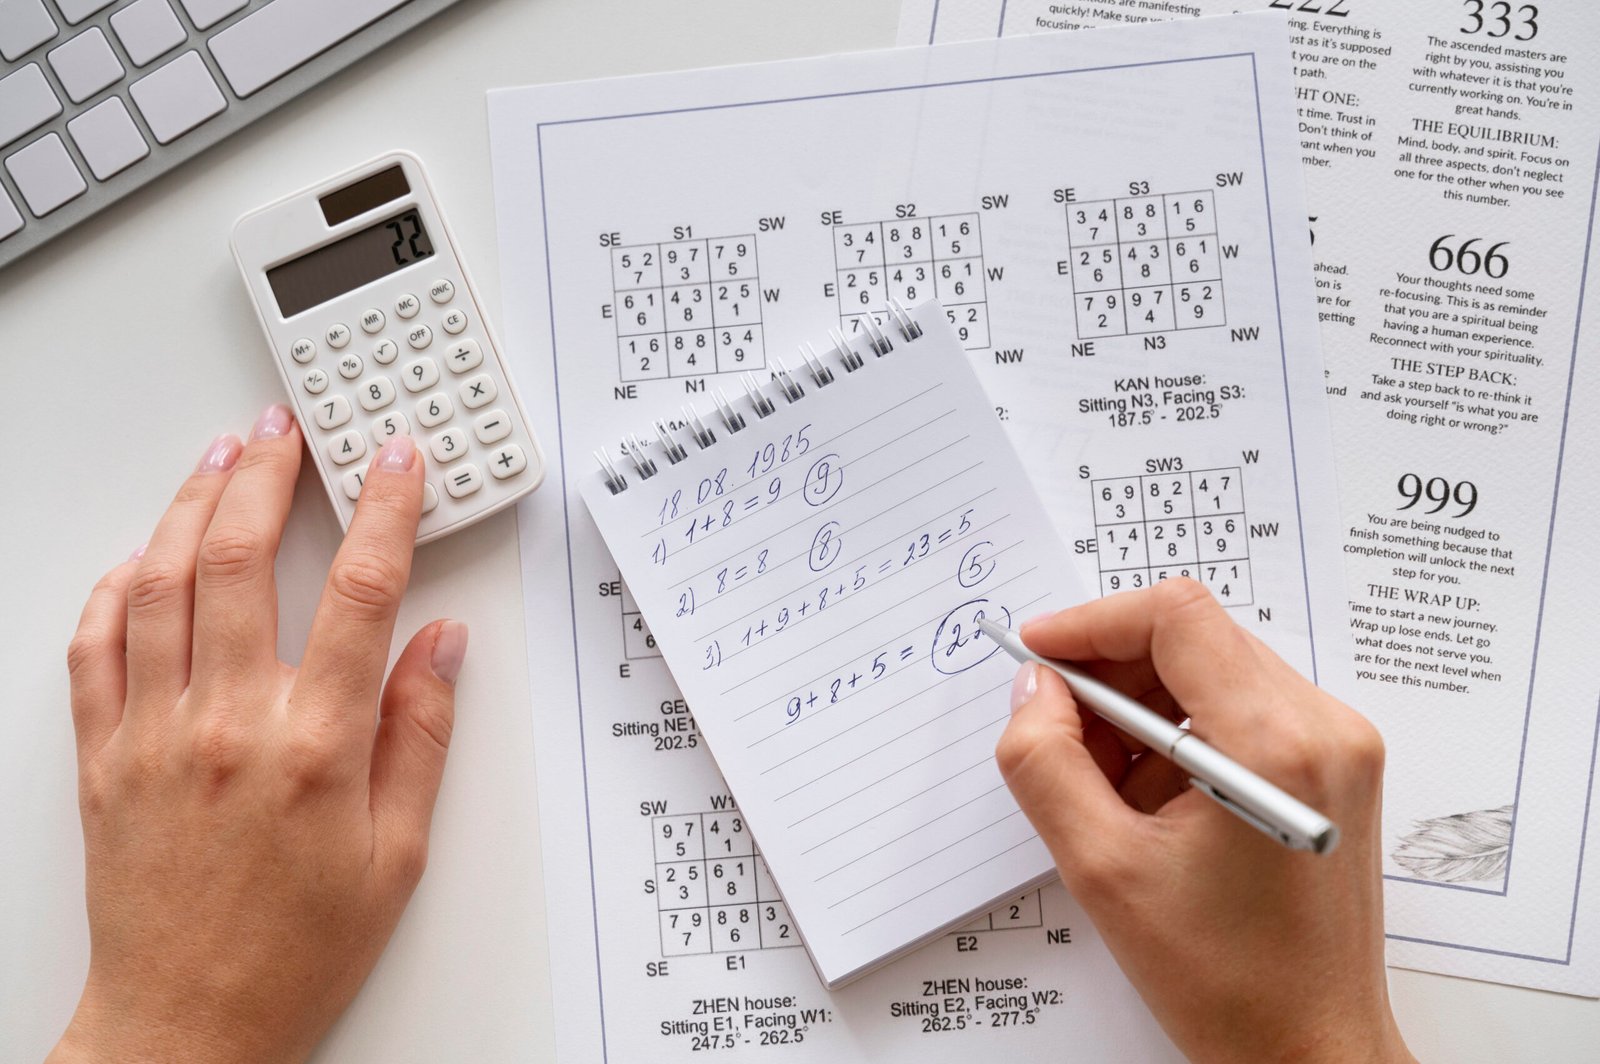 22.
M+ M- MR MC ON/C
+/- % √ OFF CE
7 8 9 ÷
4 5 6 ×
1 3 −
= +
SE S1 SW
5 2 9 7 7 9
7 3 5
E 6 1 4 3 2 5 W
6 8 1
1 6 8 8 3 4
2 4 9
NE N1
SE S2 SW
3 4 8 8 1 6
7 3 5
E 2 5 4 3 6 1 W
6 8 6
5 2
9
NW
SE S3 SW
3 4 8 8 1 6
7 3 5
E 2 5 4 3 6 1 W
6 8 6
7 9 9 7 5 2
2 4 9
NE N3 NW
KAN house:
Sitting N3, Facing S3:
187.5° - 202.5°
S SW3 W
6 9 8 2 4 7
3 5 1
SE 1 4 2 5 3 6 NW
7 8 9
9 3 7 1
4
N
18.08.1985
1) 1+8=9 9
2) 8=8 8
3) 1+9+8+5=23=5
5
9+8+5= 22
SE
4
6
E
Sitting NE1
202.5°
SW W1
9 7 4 3
5 1
S 2 5 6 1
3 8
7 9 8 8 3
7 6 2
SE E1
ZHEN house:
Sitting E1, Facing W1:
247.5° - 262.5°
2
E2 NE
ZHEN house:
Sitting E2, Facing W2:
262.5° - 277.5°
are manifesting
quickly! Make sure
focusing
222
Everything is
as it's supposed
you are on the
path.
ONE:
time. Trust in
Don't think of
when you
333
The ascended masters are
right by you, assisting you
with whatever it is that you're
currently working on. You're in
great hands.
THE EQUILIBRIUM:
Mind, body, and spirit. Focus on
all three aspects, don't neglect
one for the other when you see
this number.
ahead.
are for
getting
666
Your thoughts need some
re-focusing. This is as reminder
that you are a spiritual being
having a human experience.
Reconnect with your spirituality.
THE STEP BACK:
Take a step back to re-think it
and ask yourself "is what you are
doing right or wrong?"
999
You are being nudged to
finish something because that
completion will unlock the next
step for you.
THE WRAP UP:
Time to start a new journey.
Wrap up lose ends. Let go
what does not serve you.
are for the next level when
you see this number.